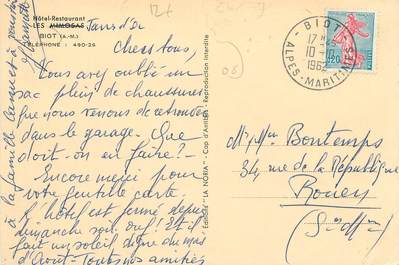 Hôtel-Restaurant
LES MIMOSAS
BIOT (A.-M.)
TÉLÉPHONE : 490-26
Chers tous,
Vous avez oublié un
sac plein de chaussures
que nous venons de retrouver
dans le garage. Que
doit-on en faire?-
Encore merci pour
votre gentille carte.
L'hôtel est fermé depuis
dimanche soir. ouf! Et il
fait un soleil digne du mois
d'Août. Toutes nos amitiés
à la famille
Editions "LA NORIA" - Cap d'Antibes - Reproduction interdite
12+
06
BIOT
17 H
10-10
1962
ALPES-MARITIMES
0,20
Mr Mme Bontemps
34 rue de la République
Rouen
(S.Mme)